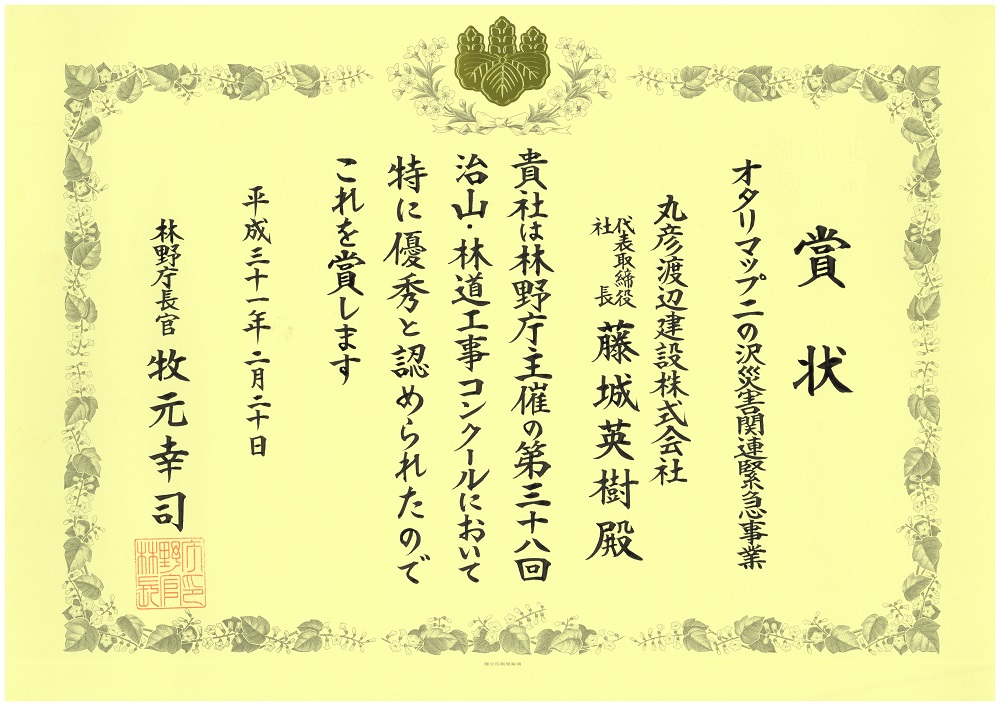 賞状
オタリマップ二の沢災害関連緊急事業
丸彦渡辺建設株式会社
代表取締役
社長
藤城英樹殿
貴社は林野庁主催の第三十八回
治山・林道工事コンクールにおいて
特に優秀と認められたので
これを賞します
平成三十一年二月二十日
林野庁長官 牧元幸司